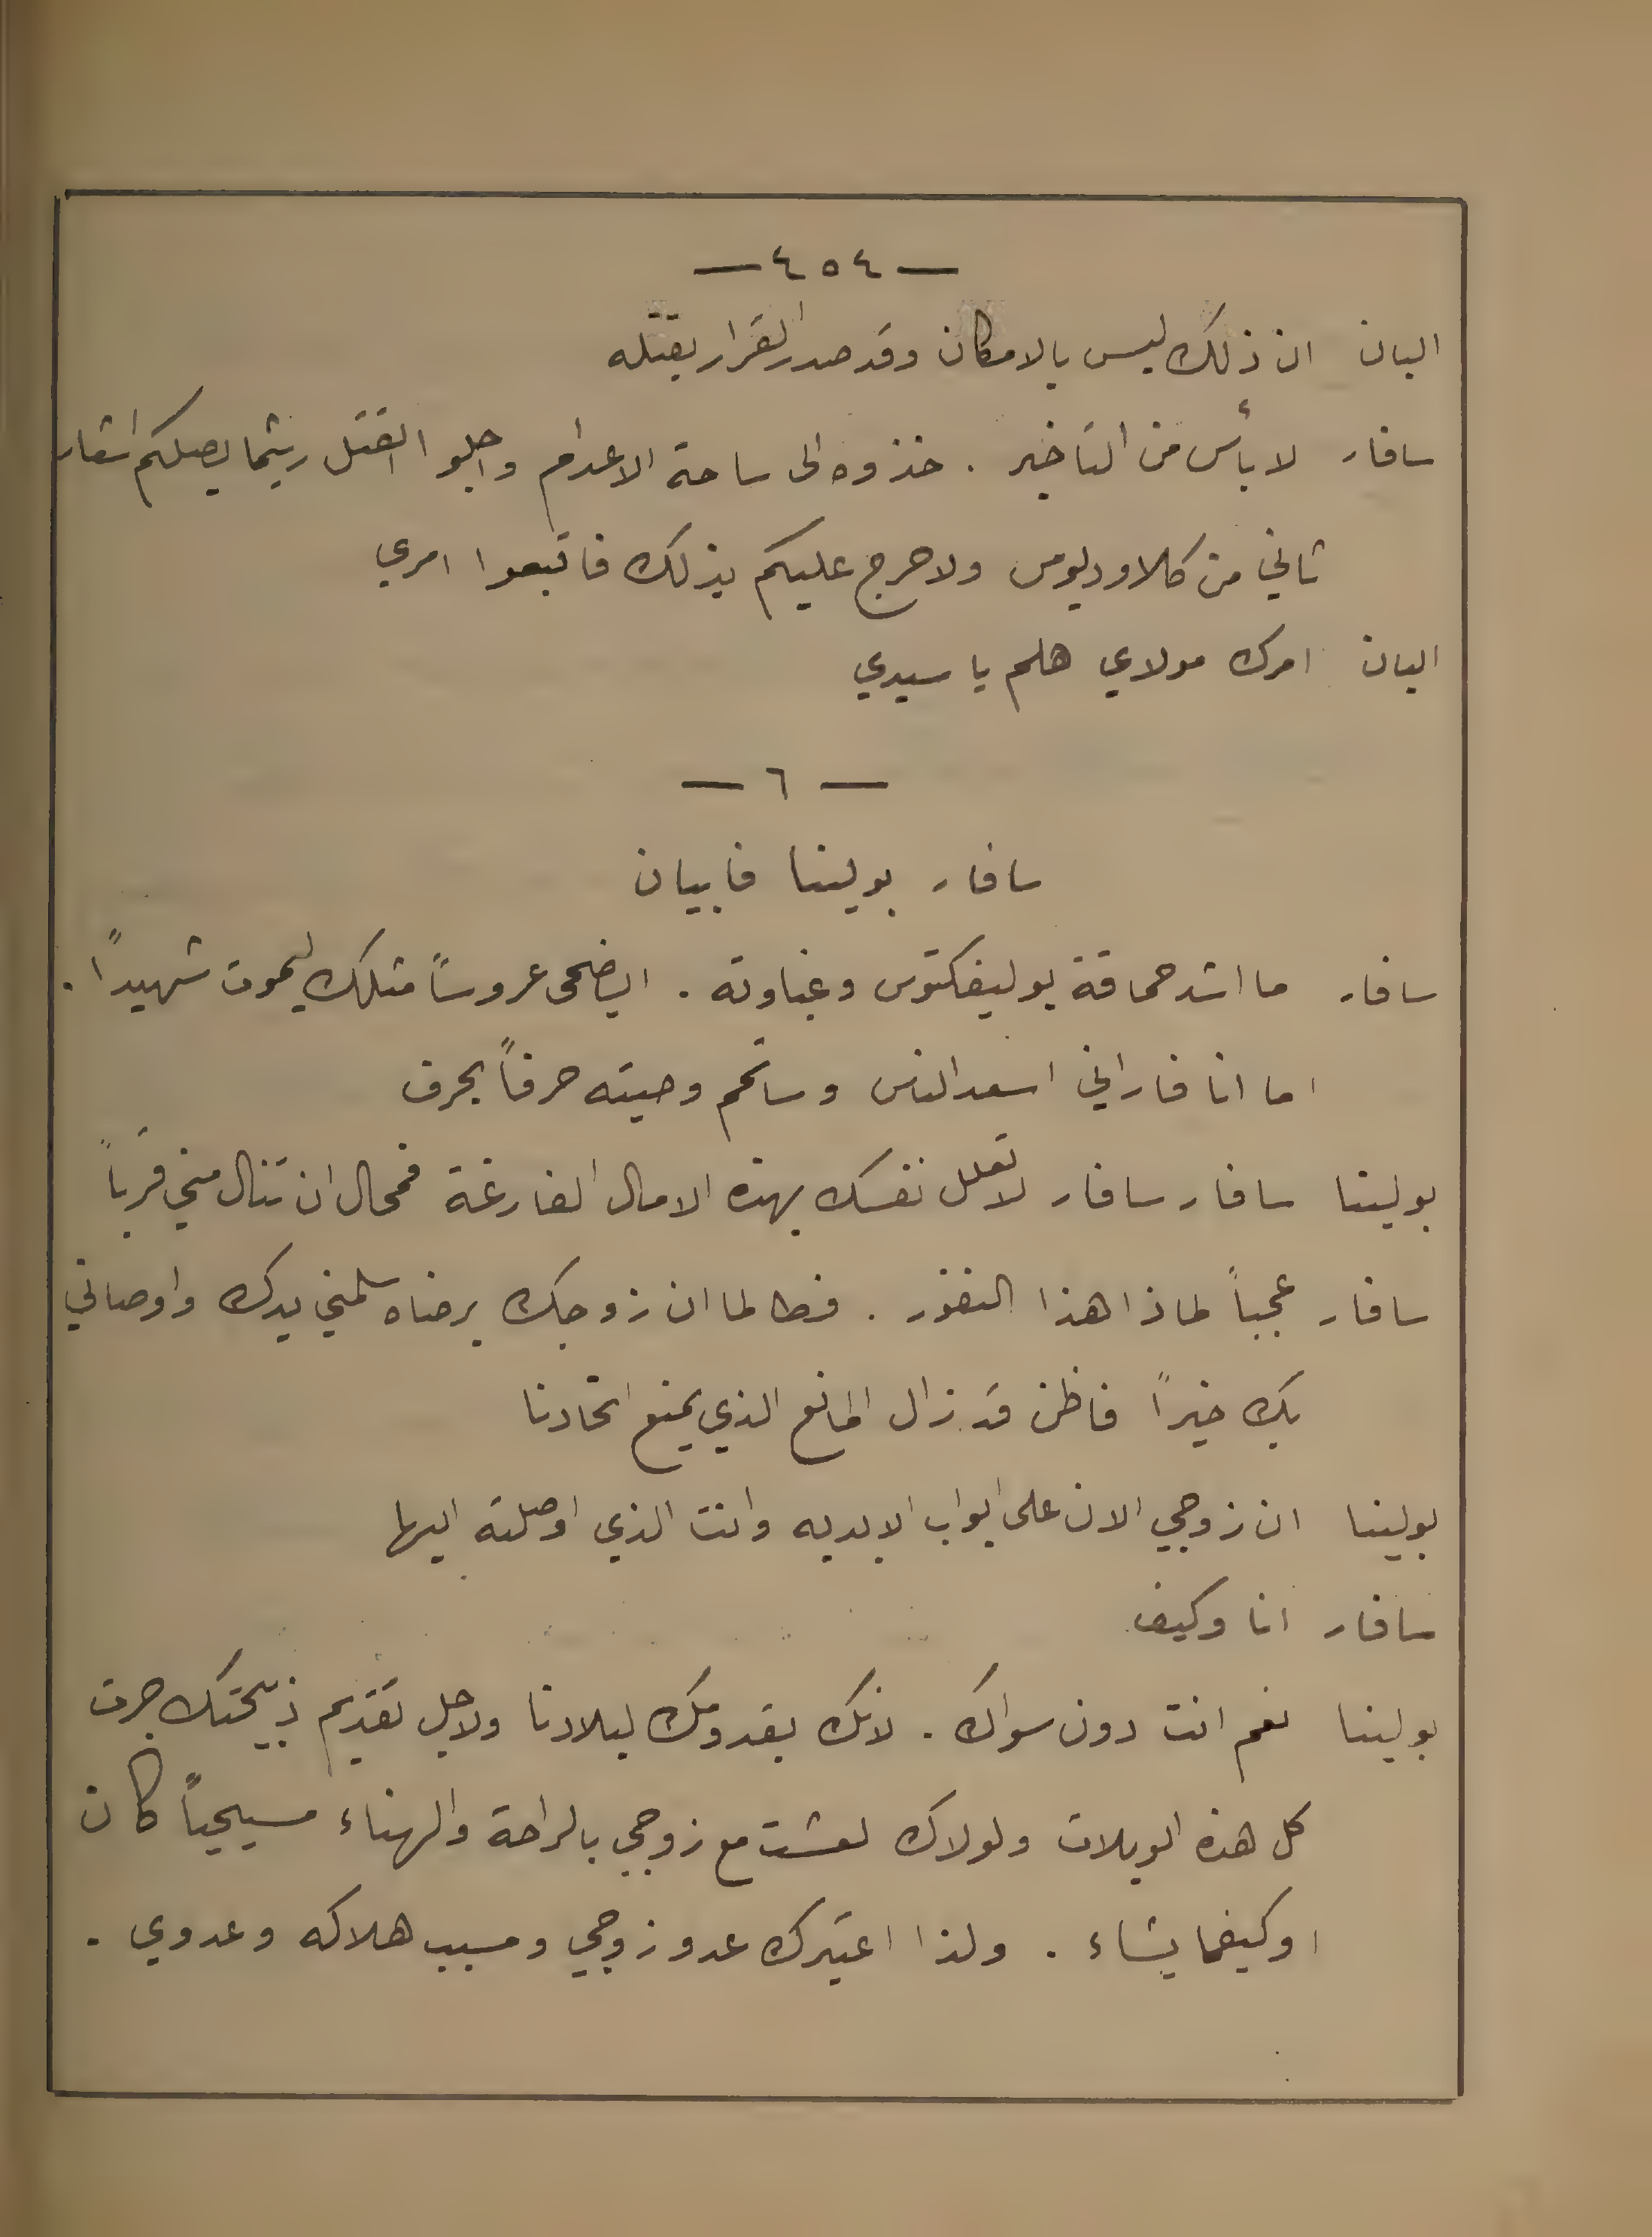 — ٤٥٤ —
البان ان ذلك ليس بالامكان وقد صدر القرار بقتله
سافار لا بأس من التأخير . خذوه الى ساحة الاعدام واجلوا القتل ريثما يصلكم اشعار
ثاني من كلاوديوس ولا حرج عليكم بذلك فاتبعوا امري
البان امرك مولاي هلم يا سيدي
— ٦ —
سافار بولينا فابيان
سافار ما اشد حماقة بوليفكتوس وغباوته . ايضحى عروساً مثلك ليموت شهيداً .
اما انا فاراني اسعد الناس وساتمم وصيته حرفاً بحرف
بولينا سافار سافار لا تعلل نفسك بهذه الامال الفارغة فمحال ان تنال مني قرباً
سافار عجباً لماذا هذا النفور . فطالما ان زوجك برضاه سلمني يدك واوصاني
بك خيراً فاظن قد زال المانع الذي يمنع اتحادنا
بولينا ان زوجي الان على ابواب الابديه وانت الذي اوصلته اليها
سافار انا وكيف
بولينا نعم انت دون سواك . لانك بقدومك لبلادنا ولاجل تقديم ذبيحتك جرت
كل هذه الويلات ولولاك لعشت مع زوجي بالراحة والهناء مسيحياً كان
او كيفما يشاء . ولذا اعتبرك عدو زوجي ومسبب هلاكه وعدوي .